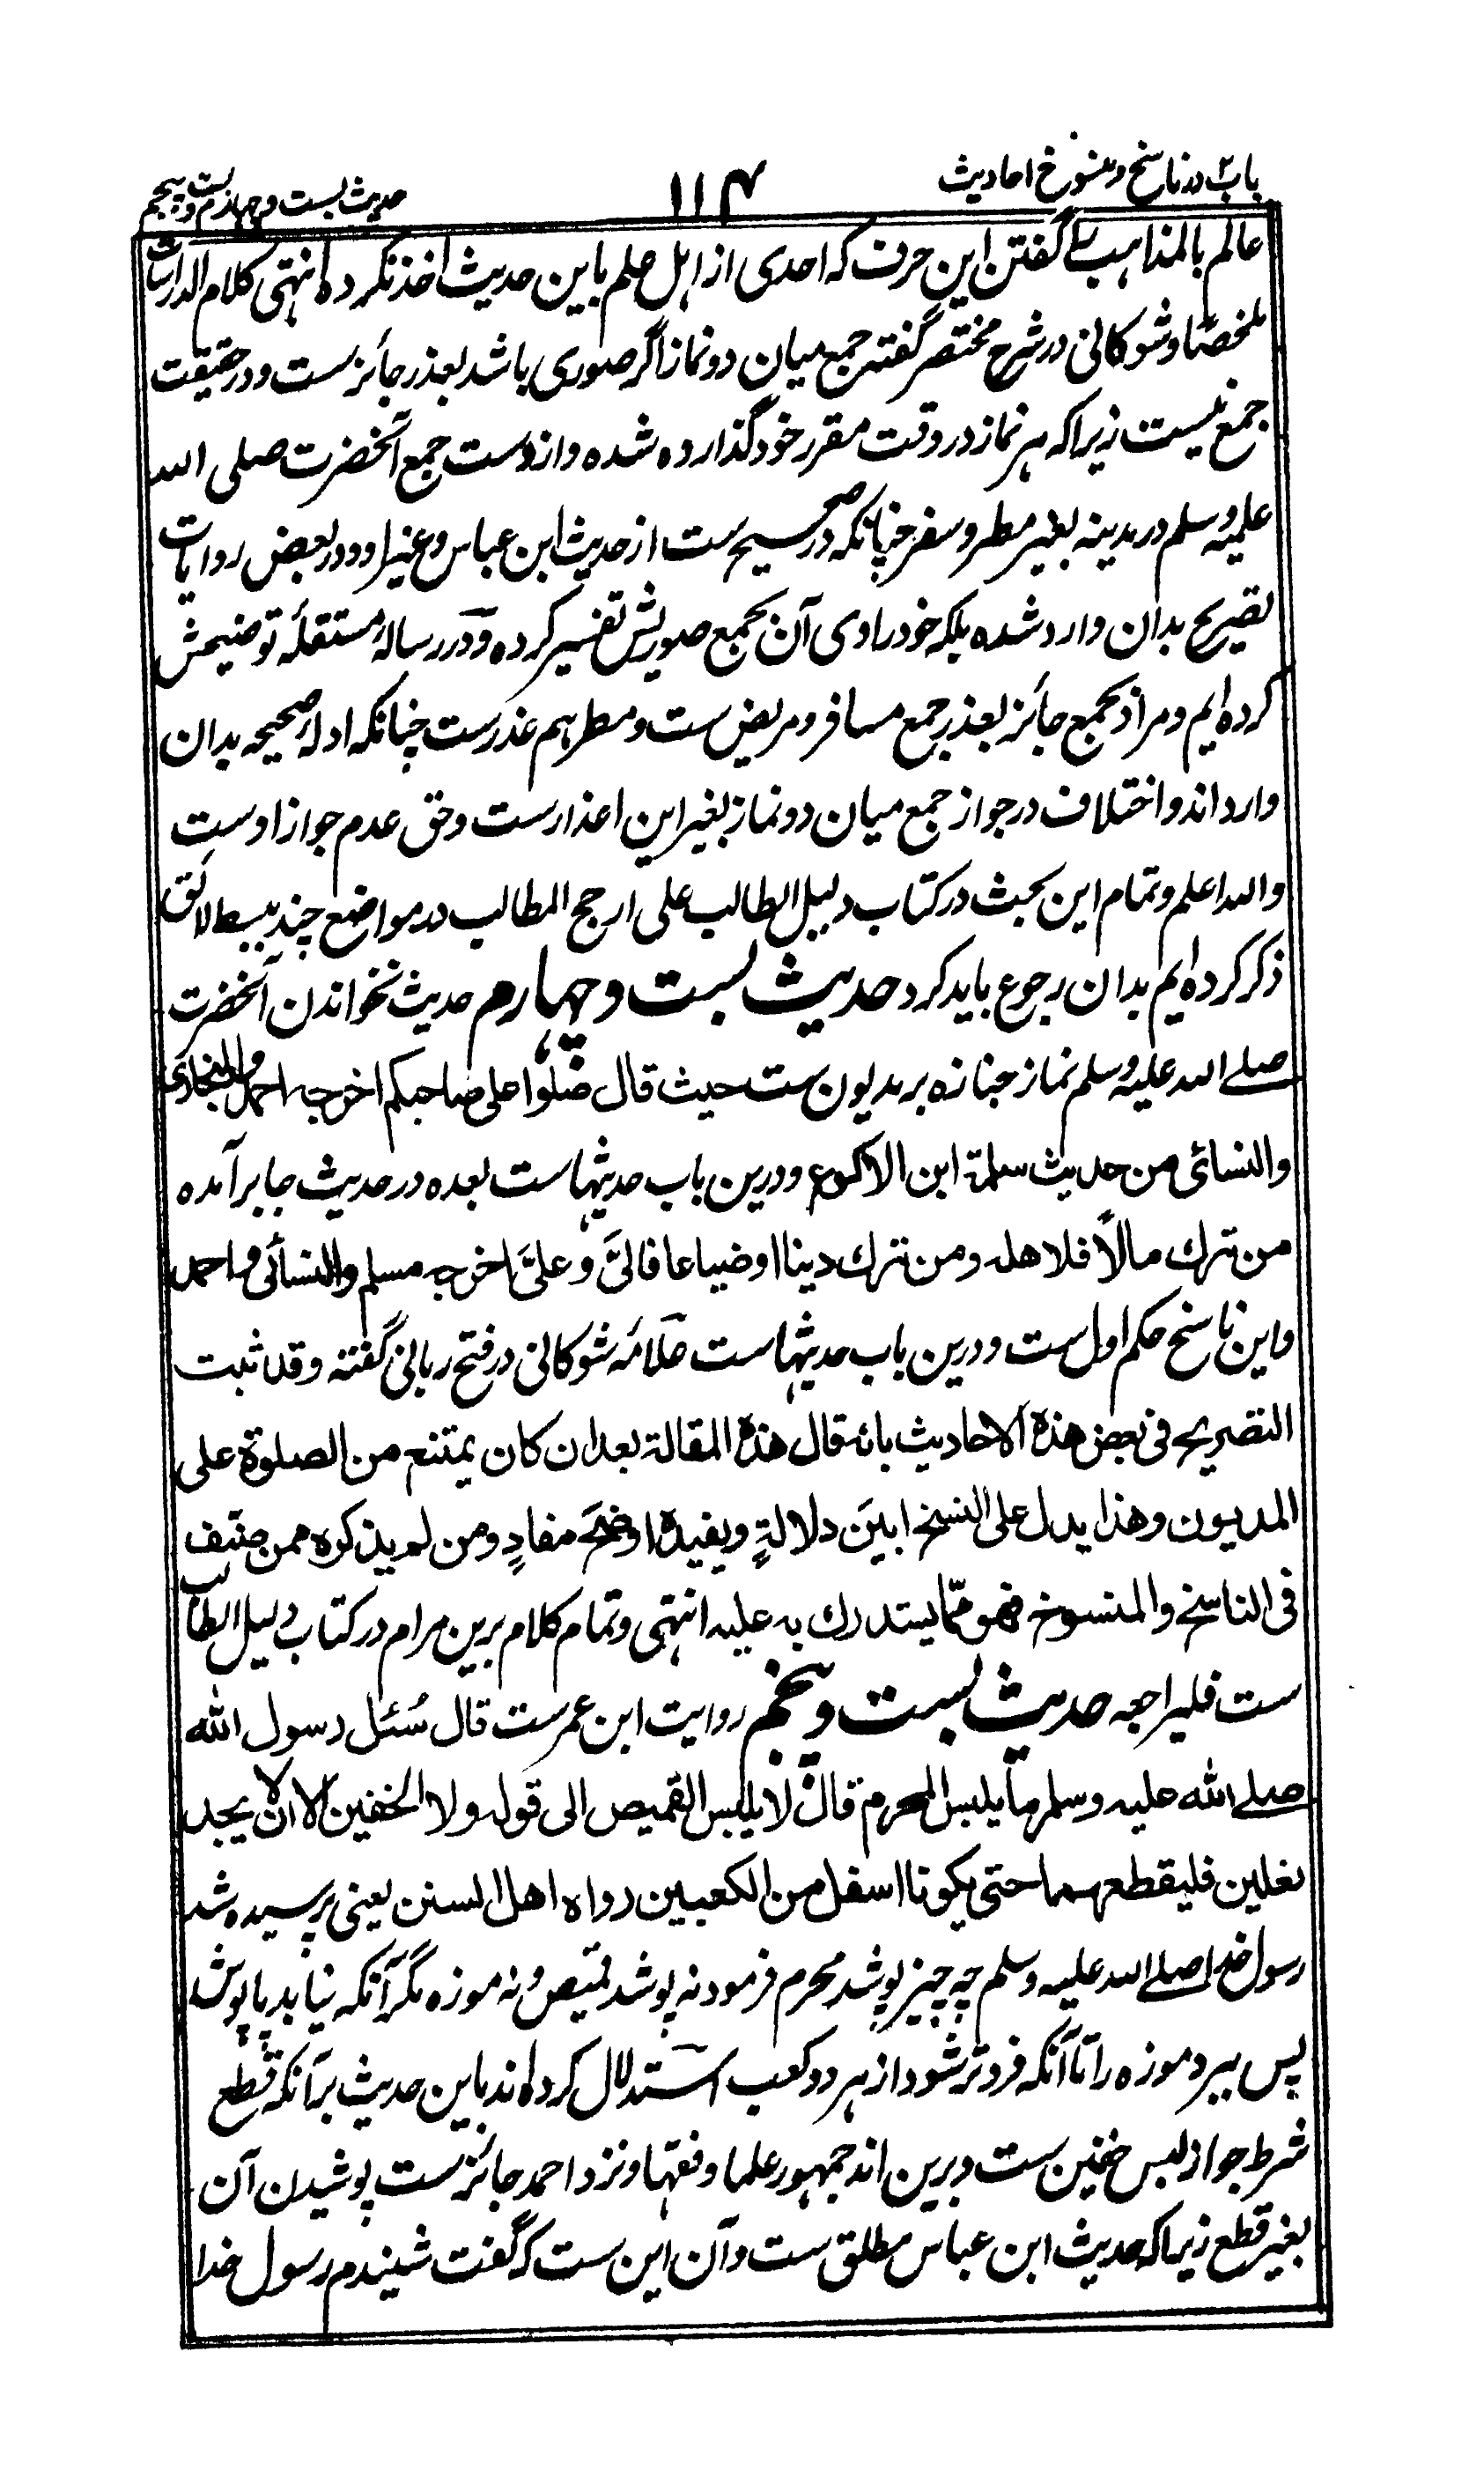 باب ۲ در ناسخ و منسوخ احادیث
۱۱۴
حدیث بست و چهارم و بست و پنجم
عالم بالمذاهب بے گفتن این حرف که احدی از اهل علم باین حدیث اخذ نکرده انتهی کلام الدراسات
ملخصاً و شوکانی در شرح مختصر گفته جمع میان دو نماز اگر صوری باشد بعذر جائز ست و در حقیقت
جمع نیست زیرا که هر نماز در وقت مقرر خود گذارده شده و ازوست جمع آنحضرت صلی الله
علیه وسلم در مدینه بغیر مطر و سفر چنانکه در صحیح ست از حدیث ابن عباس و غیر او و در بعض روایات
تصریح بدان وارد شده بلکه خود راوی آن بجمع صوریش تفسیر کرده و در رسالهٔ مستقله توضیحش
کرده ایم و مراد بجمع جائز بعذر جمع مسافر و مریض ست و مطر هم عذرست چنانکه ادلهٔ صحیحه بدان
وارد اند و اختلاف در جواز جمع میان دو نماز بغیر این اعذارست و حق عدم جواز اوست
والله اعلم و تمام این بحث در کتاب دلیل الطالب علی ارجح المطالب در مواضع چند ببسط لائق
ذکر کرده ایم بدان رجوع باید کرد حدیث بست و چهارم حدیث نخواندن آنحضرت
صلے الله علیه وسلم نماز جنازه بر مدیون ست حیث قال صلوا علی صاحبکم اخرجه احمد والبخاری
والنسائی من حدیث سلمة ابن الاکوع و درین باب حدیثهاست بعده در حدیث جابر آمده
من ترك مالاً فلاهله ومن ترك دینا او ضیاعا فالیَّ وعلیَّ اخرجه مسلم والنسائی واحمد
و این ناسخ حکم اول ست و درین باب حدیثهاست علامه شوکانی در فتح ربانی گفته وقد ثبت
التصریح فی بعض هذه الاحادیث بانه قال هذه المقالة بعد ان کان یمتنع من الصلوة علی
المدیون وهذا یدل علی النسخ ابینَ دلالةٍ ویفیده اوضحَ مفادٍ ومن لم یذکره ممن صنّف
فی الناسخ والمنسوخ فهو ممّا یستدرك به علیه انتهی و تمام کلام برین مرام در کتاب دلیل الطالب
ست فلیراجعه حدیث بست و پنجم روایت ابن عمرست قال سُئل رسول الله
صلے الله علیه وسلم ما یلبس المحرم قال لا یلبس القمیص الی قوله ولا الخفین الا ان لا یجد
نعلین فلیقطعهما حتی یکونا اسفل من الکعبین رواه اهل السنن یعنی پرسیده شد
رسول خدا صلے الله علیه وسلم چه چیز پوشد محرم فرمود نه پوشد قمیص و نه موزه مگر آنکه نیابد پاپوش
پس ببرد موزه را تا آنکه فروتر شود از هر دو کعب استدلال کرده اند باین حدیث بر آنکه قطع
شرط جواز لبس خفین ست و برین اند جمهور علما و فقها و نزد احمد جائز ست پوشیدن آن
بغیر قطع زیرا که حدیث ابن عباس مطلق ست و آن این ست که گفت شنیدم رسول خدا